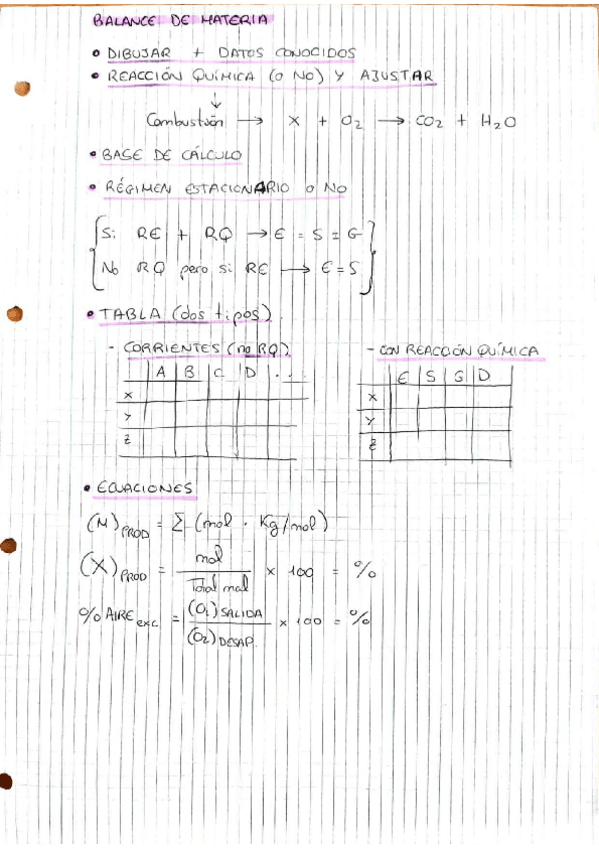 BALANCE DE MATERIA
• DIBUJAR + DATOS CONOCIDOS
• REACCIÓN QUÍMICA (O NO) Y AJUSTAR
↓
Combustión → X + O₂ → CO₂ + H₂O
• BASE DE CÁLCULO
• RÉGIMEN ESTACIONARIO O NO
Si RE + RQ → E = S = G
No RQ pero si RE → E = S
• TABLA (dos tipos).
- CORRIENTES (no RQ).
A B C D ...
X
Y
Z
- CON REACCIÓN QUÍMICA
E S G D
X
Y
Z
• ECUACIONES
(M)PROD = Σ (mol · Kg/mol)
(X)PROD = mol / Total mol × 100 = %
% AIRE exc. = (O₂)SALIDA / (O₂)DESAP. × 100 = %